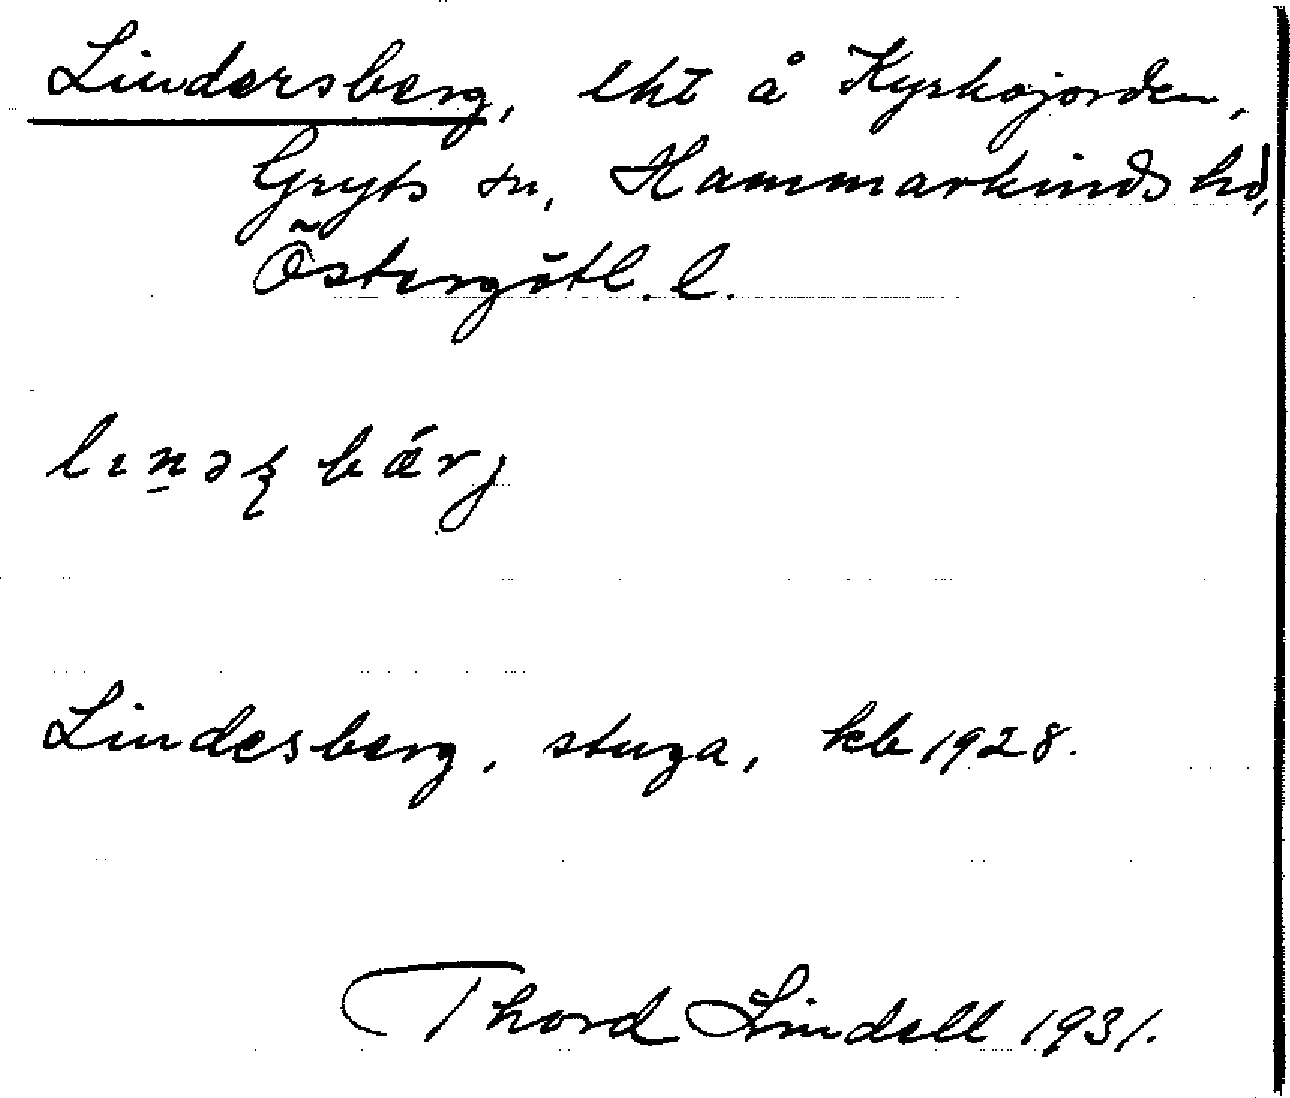 Lindersberg, lht å Kyrkojorden,
Gryts sn, Hammarkinds hd,
Östergötl. l.
lɪn̲əʂbǽrj
Lindesberg, stuga, kb 1928.
Thord Lindell 1931.